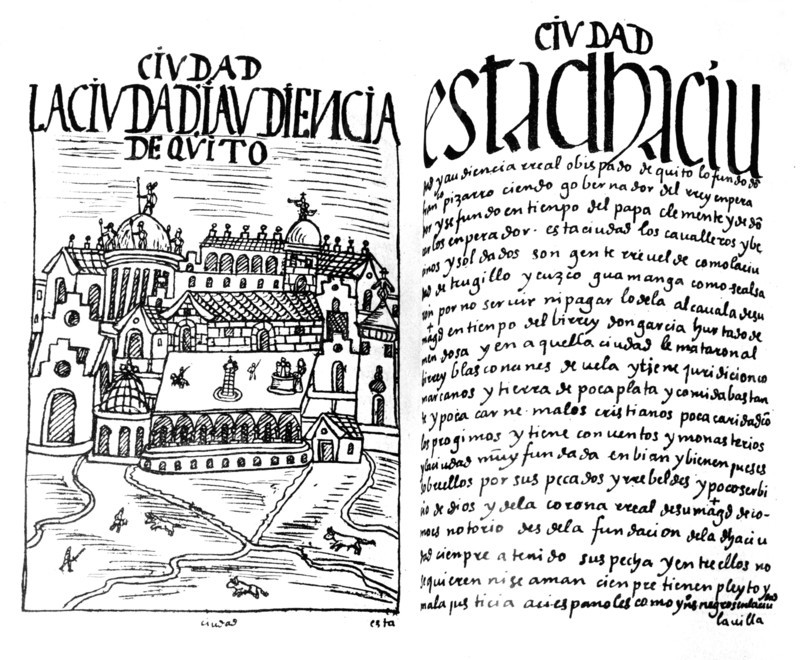 CIVDAD
LA CIVDAD, I AVDIENCIA
DE QVITO
ciudad
esta
CIVDAD
esta dha ciu
dad y audiencia rreal obispado de quito lo fundo do
fran co pizarro ciendo gobernador del rrey enpera
dor y se fundo en tienpo del papa clemente y de do
carlos enperador. esta ciudad los caualleros y be
sinos y soldados son gente rreuelde como la ciu
dad de trugillo y cuzco guamanga como se alsa
ron por no seruir ni pagar lo de la alcauala de su
magd en tienpo del birrey don garcia hurtado de
mendosa y en aquella ciudad le mataron al
birrey blasco nunes de uela y tjene juridicion co
marcanos y tierra de poca plata y comida bastan
te y poca carne. malos cristianos poca caridad co
los progimos y tiene conuentos y monasterios
y la ciudad muy fundada en bian y bienen pueses
sobre ellos por sus pecados y rrebeldes y poco serbi
cio de dios y de la corona rreal de su magd de co
mo es notorio desde la fundacion de la dha ciu
dad cienpre a tenido suspecha y entre ellos no
se quieren ni se aman cienpre tienen pleyto y
mala justicia aci espanoles como yns negros en la ciu
la uilla